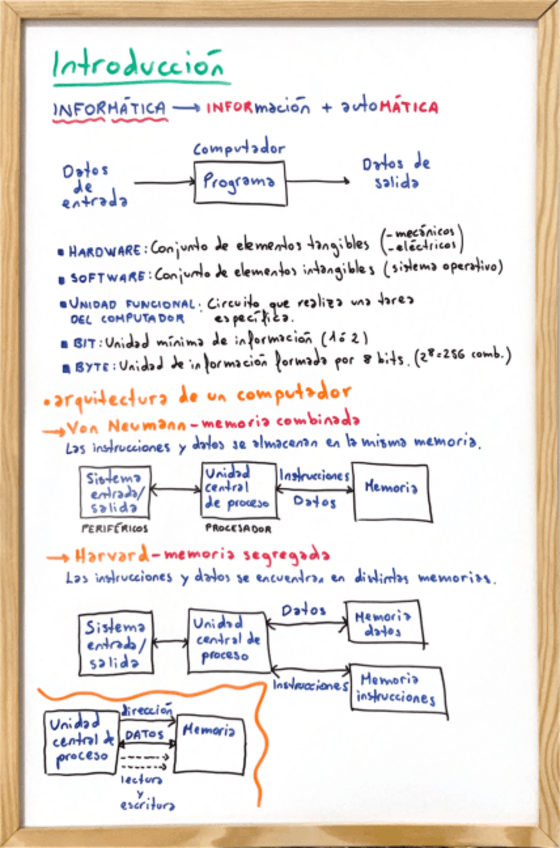 Introducción
INFORMÁTICA → INFORmación + autoMÁTICA
Computador
Datos de entrada
Programa
Datos de salida
▪ HARDWARE: Conjunto de elementos tangibles (-mecánicos -eléctricos)
▪ SOFTWARE: Conjunto de elementos intangibles (sistema operativo)
▪ UNIDAD FUNCIONAL: Circuito que realiza una tarea
DEL COMPUTADOR específica.
▪ BIT: Unidad mínima de información (1 ó 2)
▪ BYTE: Unidad de información formada por 8 bits. (2⁸=256 comb.)
• arquitectura de un computador
→ Von Neumann - memoria combinada
Las instrucciones y datos se almacenan en la misma memoria.
Sistema
entrada/
salida
PERIFÉRICOS
Unidad
central
de proceso
PROCESADOR
Instrucciones
Datos
Memoria
→ Harvard - memoria segregada
Las instrucciones y datos se encuentran en distintas memorias.
Sistema
entrada/
salida
Unidad
central de
proceso
Datos
Memoria
datos
Instrucciones
Memoria
instrucciones
Unidad
central de
proceso
dirección
DATOS
lectura
y
escritura
Memoria